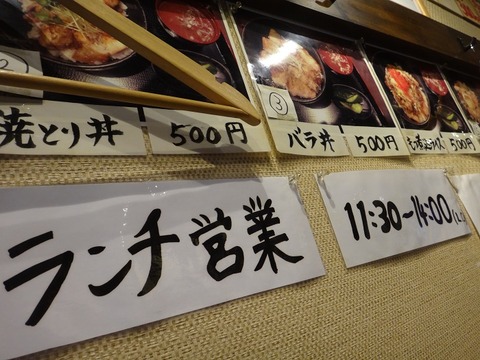 ②
焼とり丼
500円
③
バラ丼
500円
500円
ランチ営業
11:30~14:00